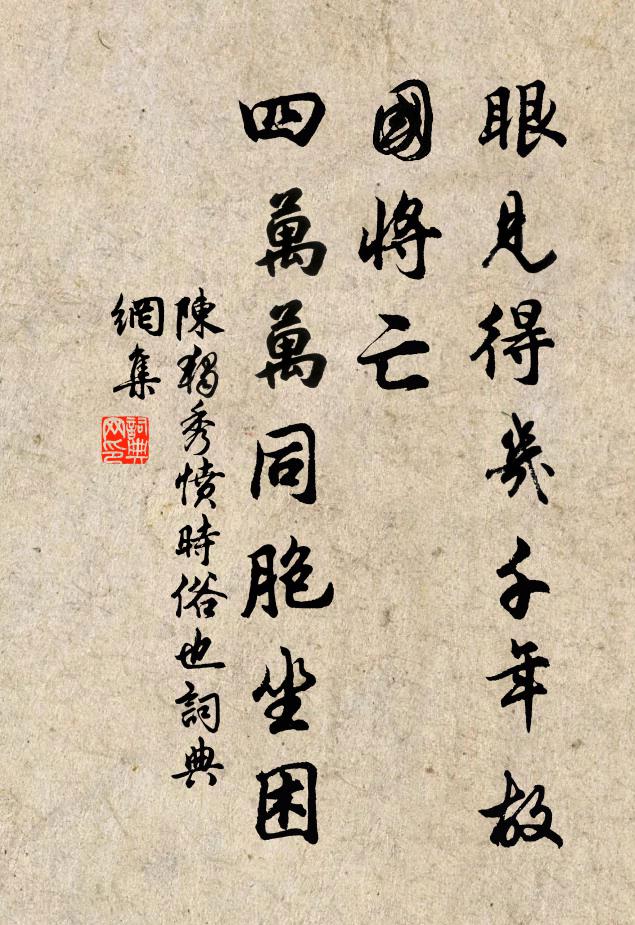 眼見得幾千年故
國將亡
四萬萬同胞坐困
陳獨秀憤時俗也詞典
網集
詞典
网印